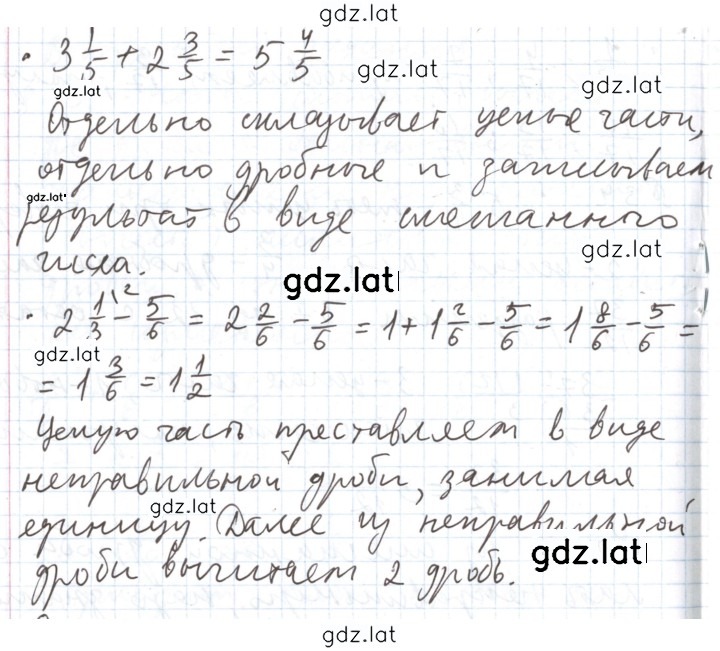 gdz.lat
· 3 1/5 + 2 3/5 = 5 4/5
gdz.lat
gdz.lat
gdz.lat
Отдельно складывает целые части,
отдельно дробные и записываем
gdz.lat
результат в виде смешанного
gdz.lat
числа.
gdz.lat
· 2 1/3 \2 - 5/6 = 2 2/6 - 5/6 = 1 + 1 2/6 - 5/6 = 1 8/6 - 5/6 =
gdz.lat
= 1 3/6 = 1 1/2
Целую часть преставляем в виде
неправильной дроби, занимая
gdz.lat
единицу. Далее из неправильной
gdz.lat
дроби вычитаем 2 дробь.
gdz.lat